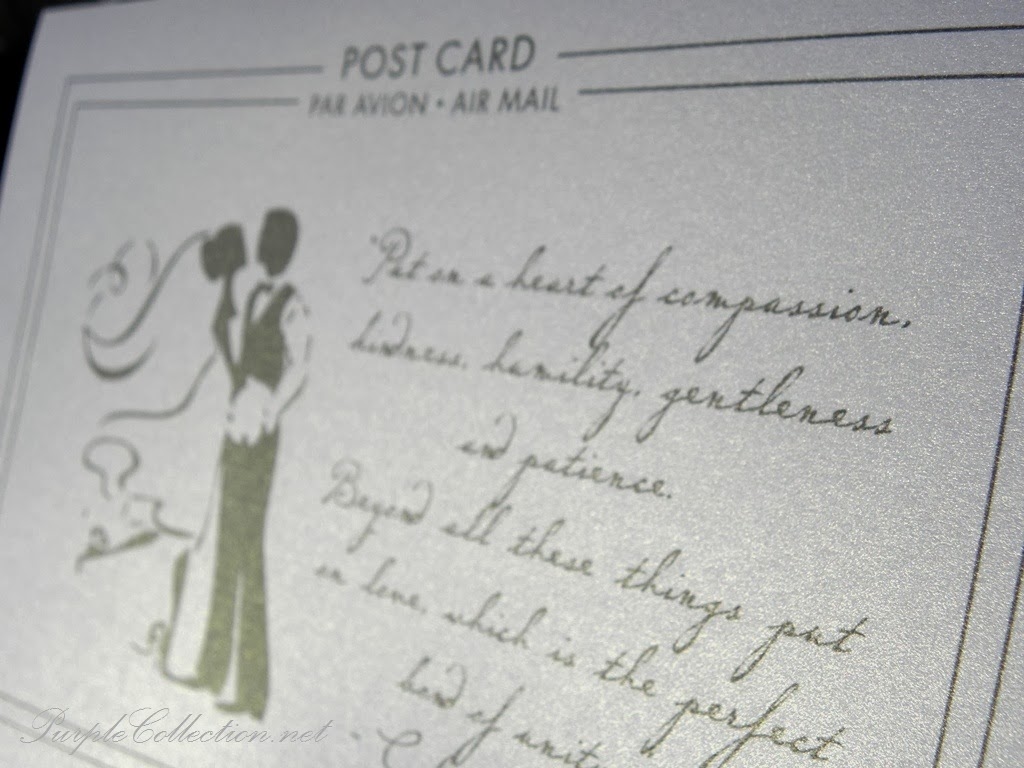 POST CARD
PAR AVION • AIR MAIL
"Put on a heart of compassion,
kindness, humility, gentleness
and patience.
Beyond all these things put
on love, which is the perfect
bond of unity
PurpleCollection.net